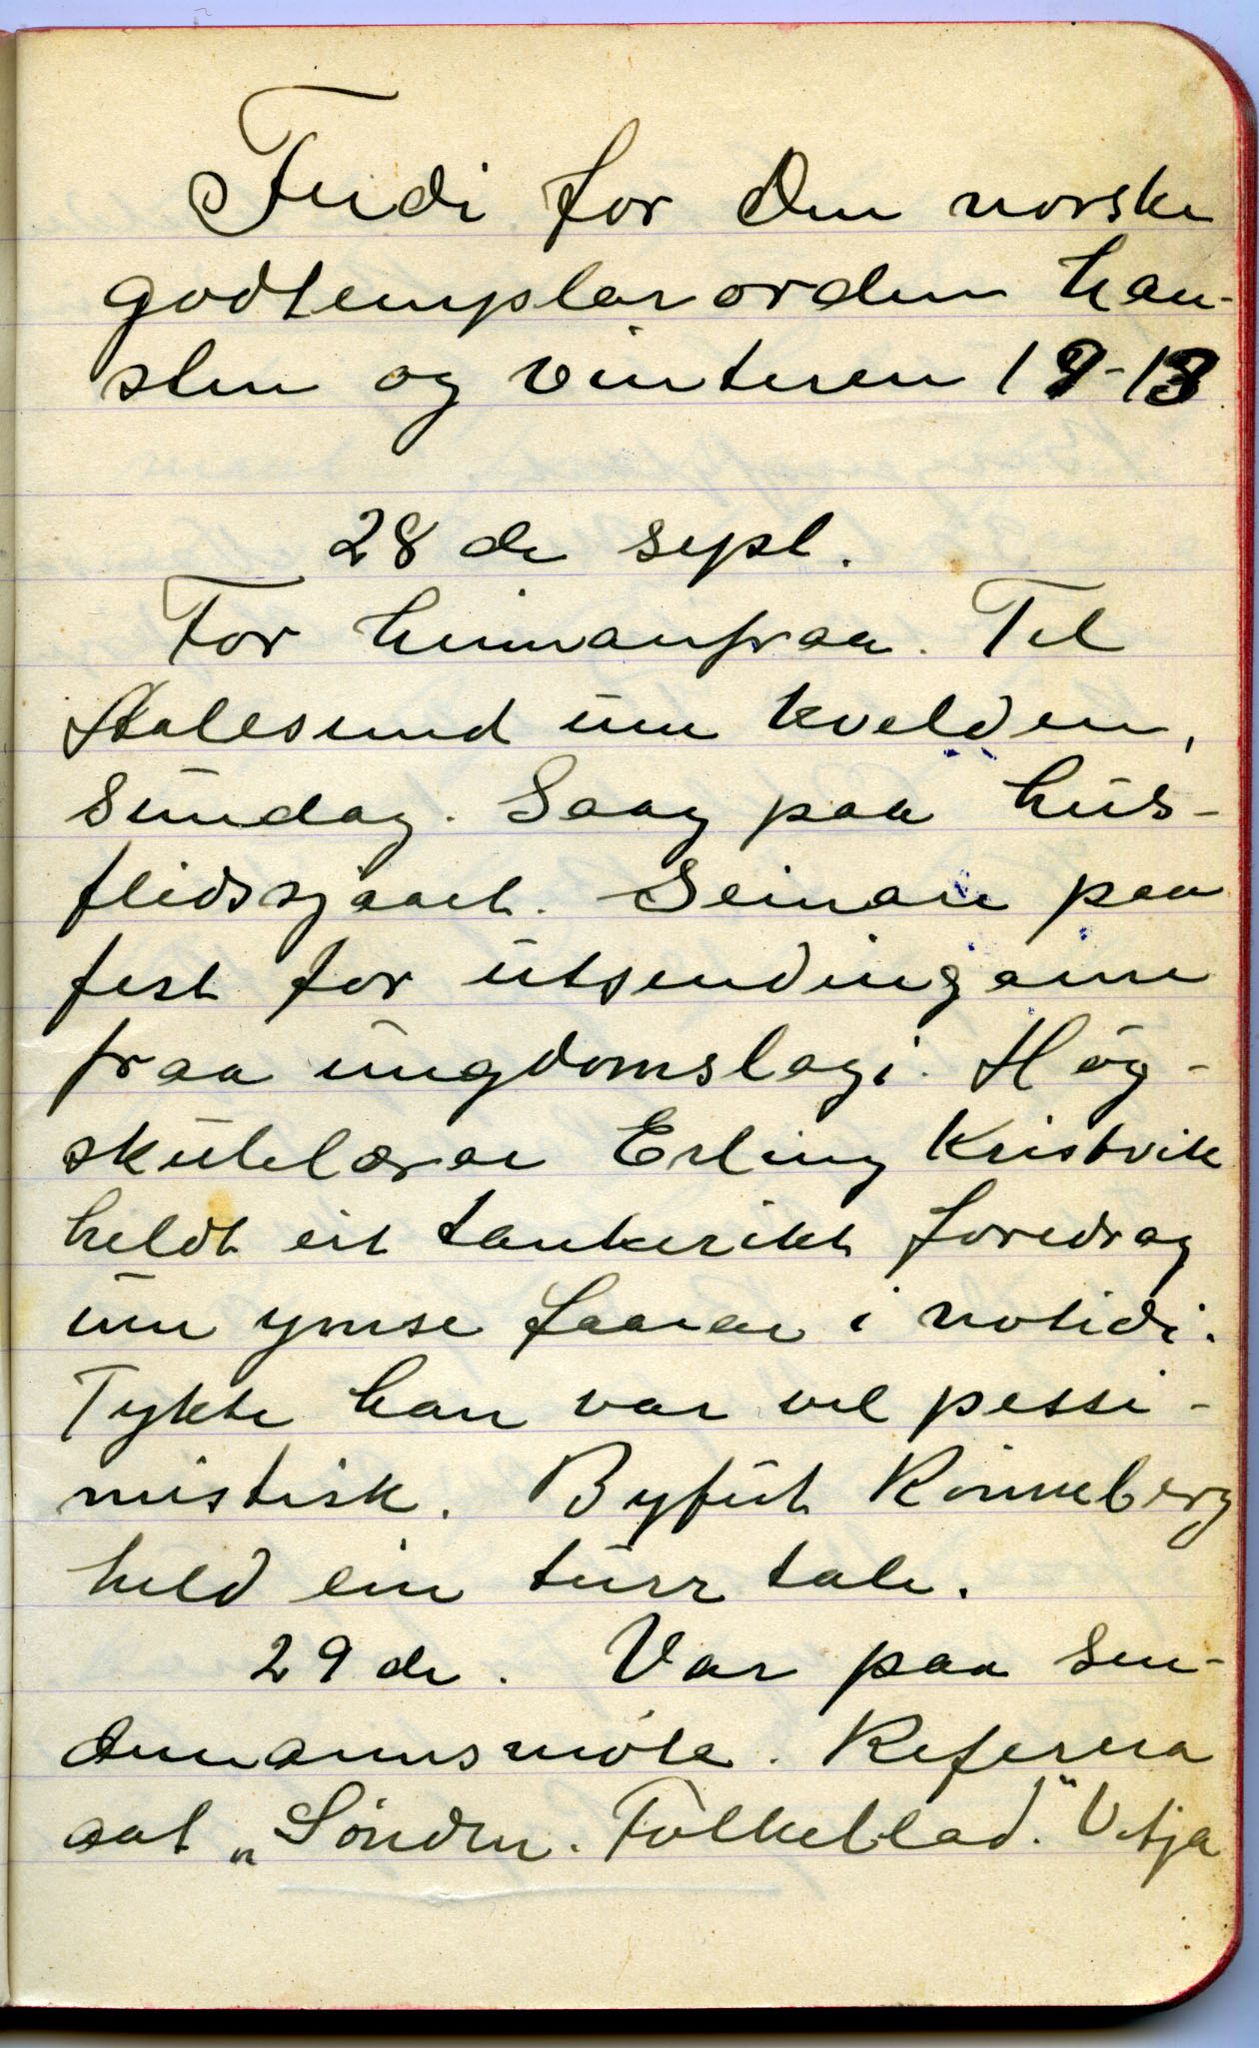 Ferdi for Den norske
godtemplarorden hau-
sten og vinteren 19-13
28de sept.
For heimanfraa. Til
Aalesund um kvelden,
sundag. Saag paa hus-
flidssjaaet. Seinare paa
fest for utsendingane
fraa ungdomslagi. Høg-
skulelærar Erling Kristvik
heldt eit tankerikt foredrag
um ymse faarar i notidi.
Tykte han var vel pessi-
mistisk. Byfut Rønneberg
held ein turr tale.
29de. Var paa sen-
demannsmøte. Referera
aat "Søndm. Folkeblad." Vitja